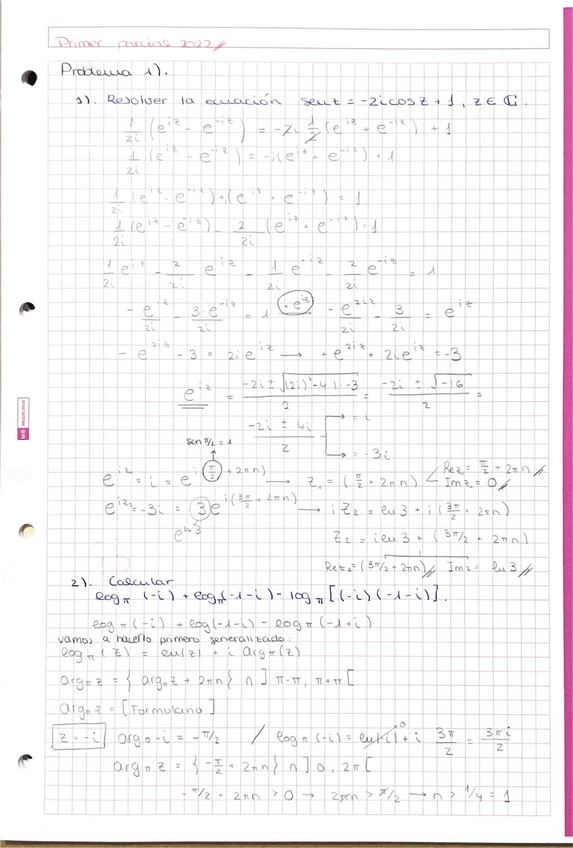 Primer parcial 2022
Problema 1).
1). Resolver la ecuación senz = -2icosz + 1, z ∈ ℂ.
1/2i (e^iz - e^-iz) = -2i 1/2 (e^iz + e^-iz) + 1
1/2i (e^iz - e^-iz) = -i(e^iz + e^-iz) + 1
1/2i (e^iz - e^-iz) + i(e^iz + e^-iz) = 1
1/2i (e^iz - e^-iz) - 2/2i (e^iz + e^-iz) = 1
1/2i e^iz - 2/2i e^iz - 1/2i e^-iz - 2/2i e^-iz = 1
- e^iz/2i - 3·e^-iz/2i = 1 ·e^iz - e^2iz/2i - 3/2i = e^iz
- e^2iz - 3 = 2i e^iz → + e^2iz + 2ie^iz = -3
e^iz = (-2i ± √((2i)²-4·1·-3))/2 = (-2i ± √-16)/2 =
(-2i ± 4i)/2 → = i
→ = -3i
sen π/2 = 1
e^iz = i = e^i(π/2 + 2πn) → z₁ = (π/2 + 2πn) < Rez₁ = π/2 + 2πn
Imz₁ = 0
e^iz₂ = -3i = 3e^i(3π/2 + 2πn) → iz₂ = ln3 + i(3π/2 + 2πn)
e^ln3
z₂ = iln3 + (3π/2 + 2πn)
Rez₂ = (3π/2 + 2πn) Imz = ln3
2). Calcular
logπ (-i) + logπ(-1-i) - logπ [(-i)(-1-i)].
logπ(-i) + log(-1-i) - logπ(-1+i)
vamos a hacerlo primero generalizado:
logπ(z) = ln(z) + i Argπ(z)
argπ z = { argo z + 2πn } ∩ ]π-π, π+π[
argo z = [Formulario]
z = -i argo -i = -π/2 / logπ(-i) = ln|-i| 0 + i 3π/2 = 3πi/2
argπ z = { -π/2 + 2πn } ∩ ]0, 2π[
-π/2 + 2πn > 0 → 2πn > π/2 → n > 1/4 = 1